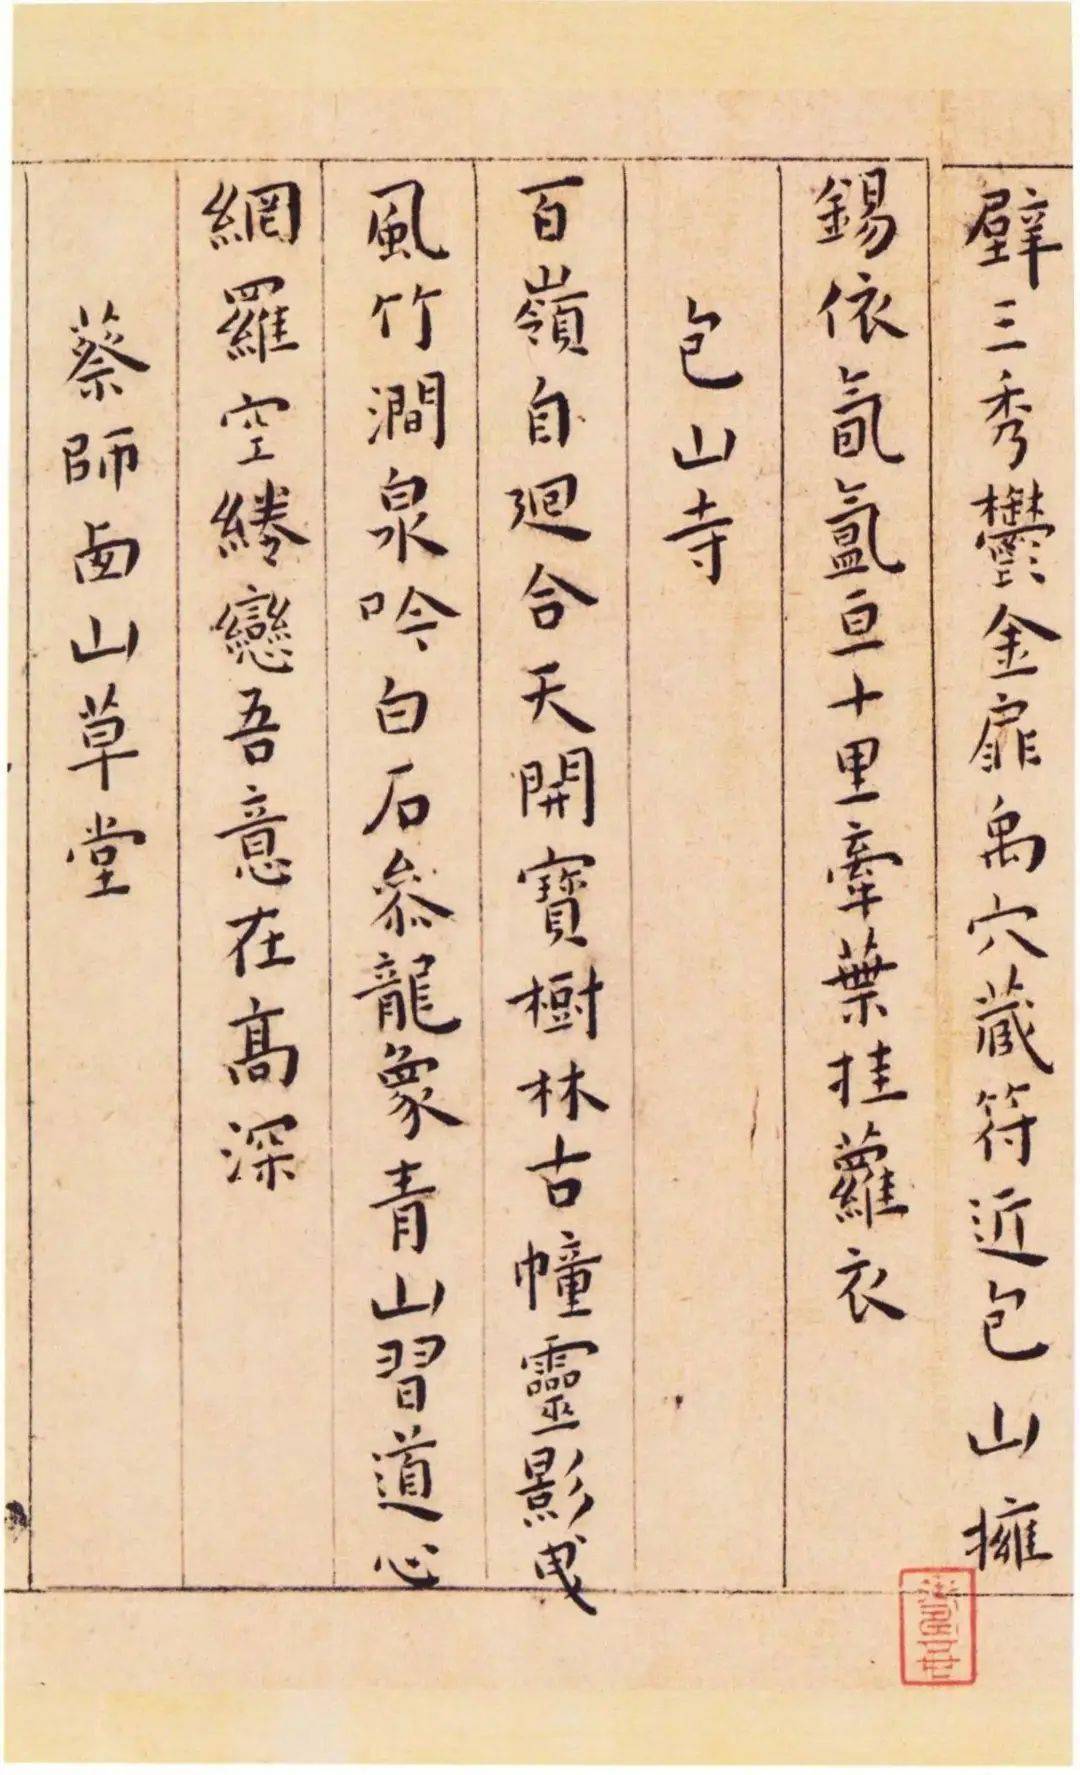 壁三秀鬱金扉禹穴藏符近包山擁
錫依氤氳亘十里牽葉挂蘿衣
包山寺
百嶺自迴合天開寶樹林古幢靈影曳
風竹澗泉吟白石叅龍象青山習道心
網羅空綣戀吾意在高深
蔡師卣山草堂